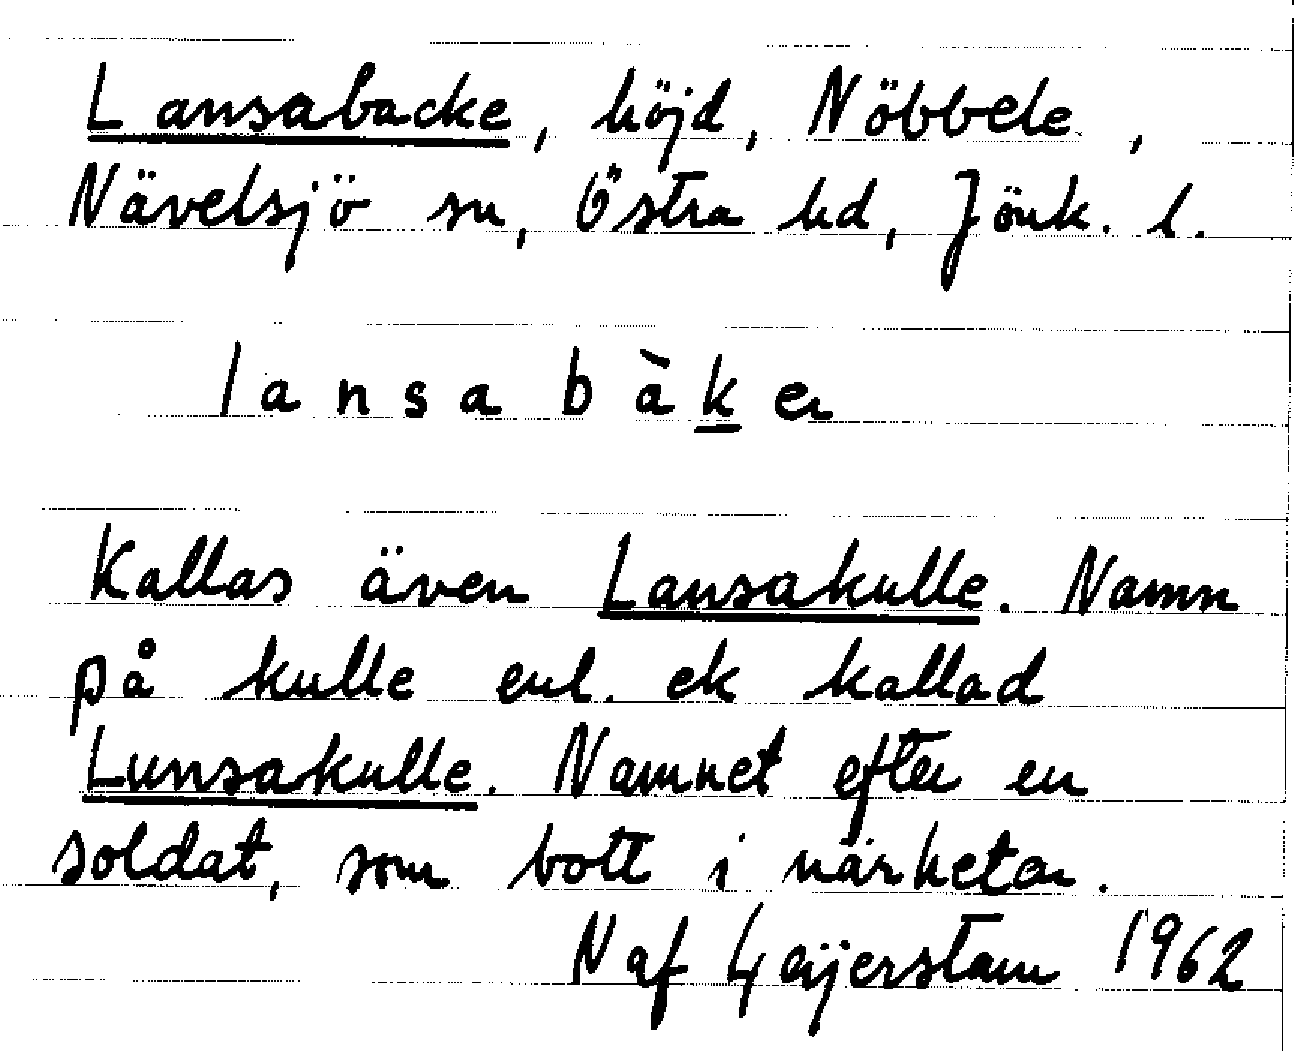 Lansabacke, höjd, Nöbbele,
Nävelsjö sn, Östra hd, Jönk. l.
lansabàker
Kallas även Lansakulle. Namn
på kulle enl. ek kallad
Lunsakulle. Namnet efter en
soldat, som bott i närheten.
N af Geijerstam 1962